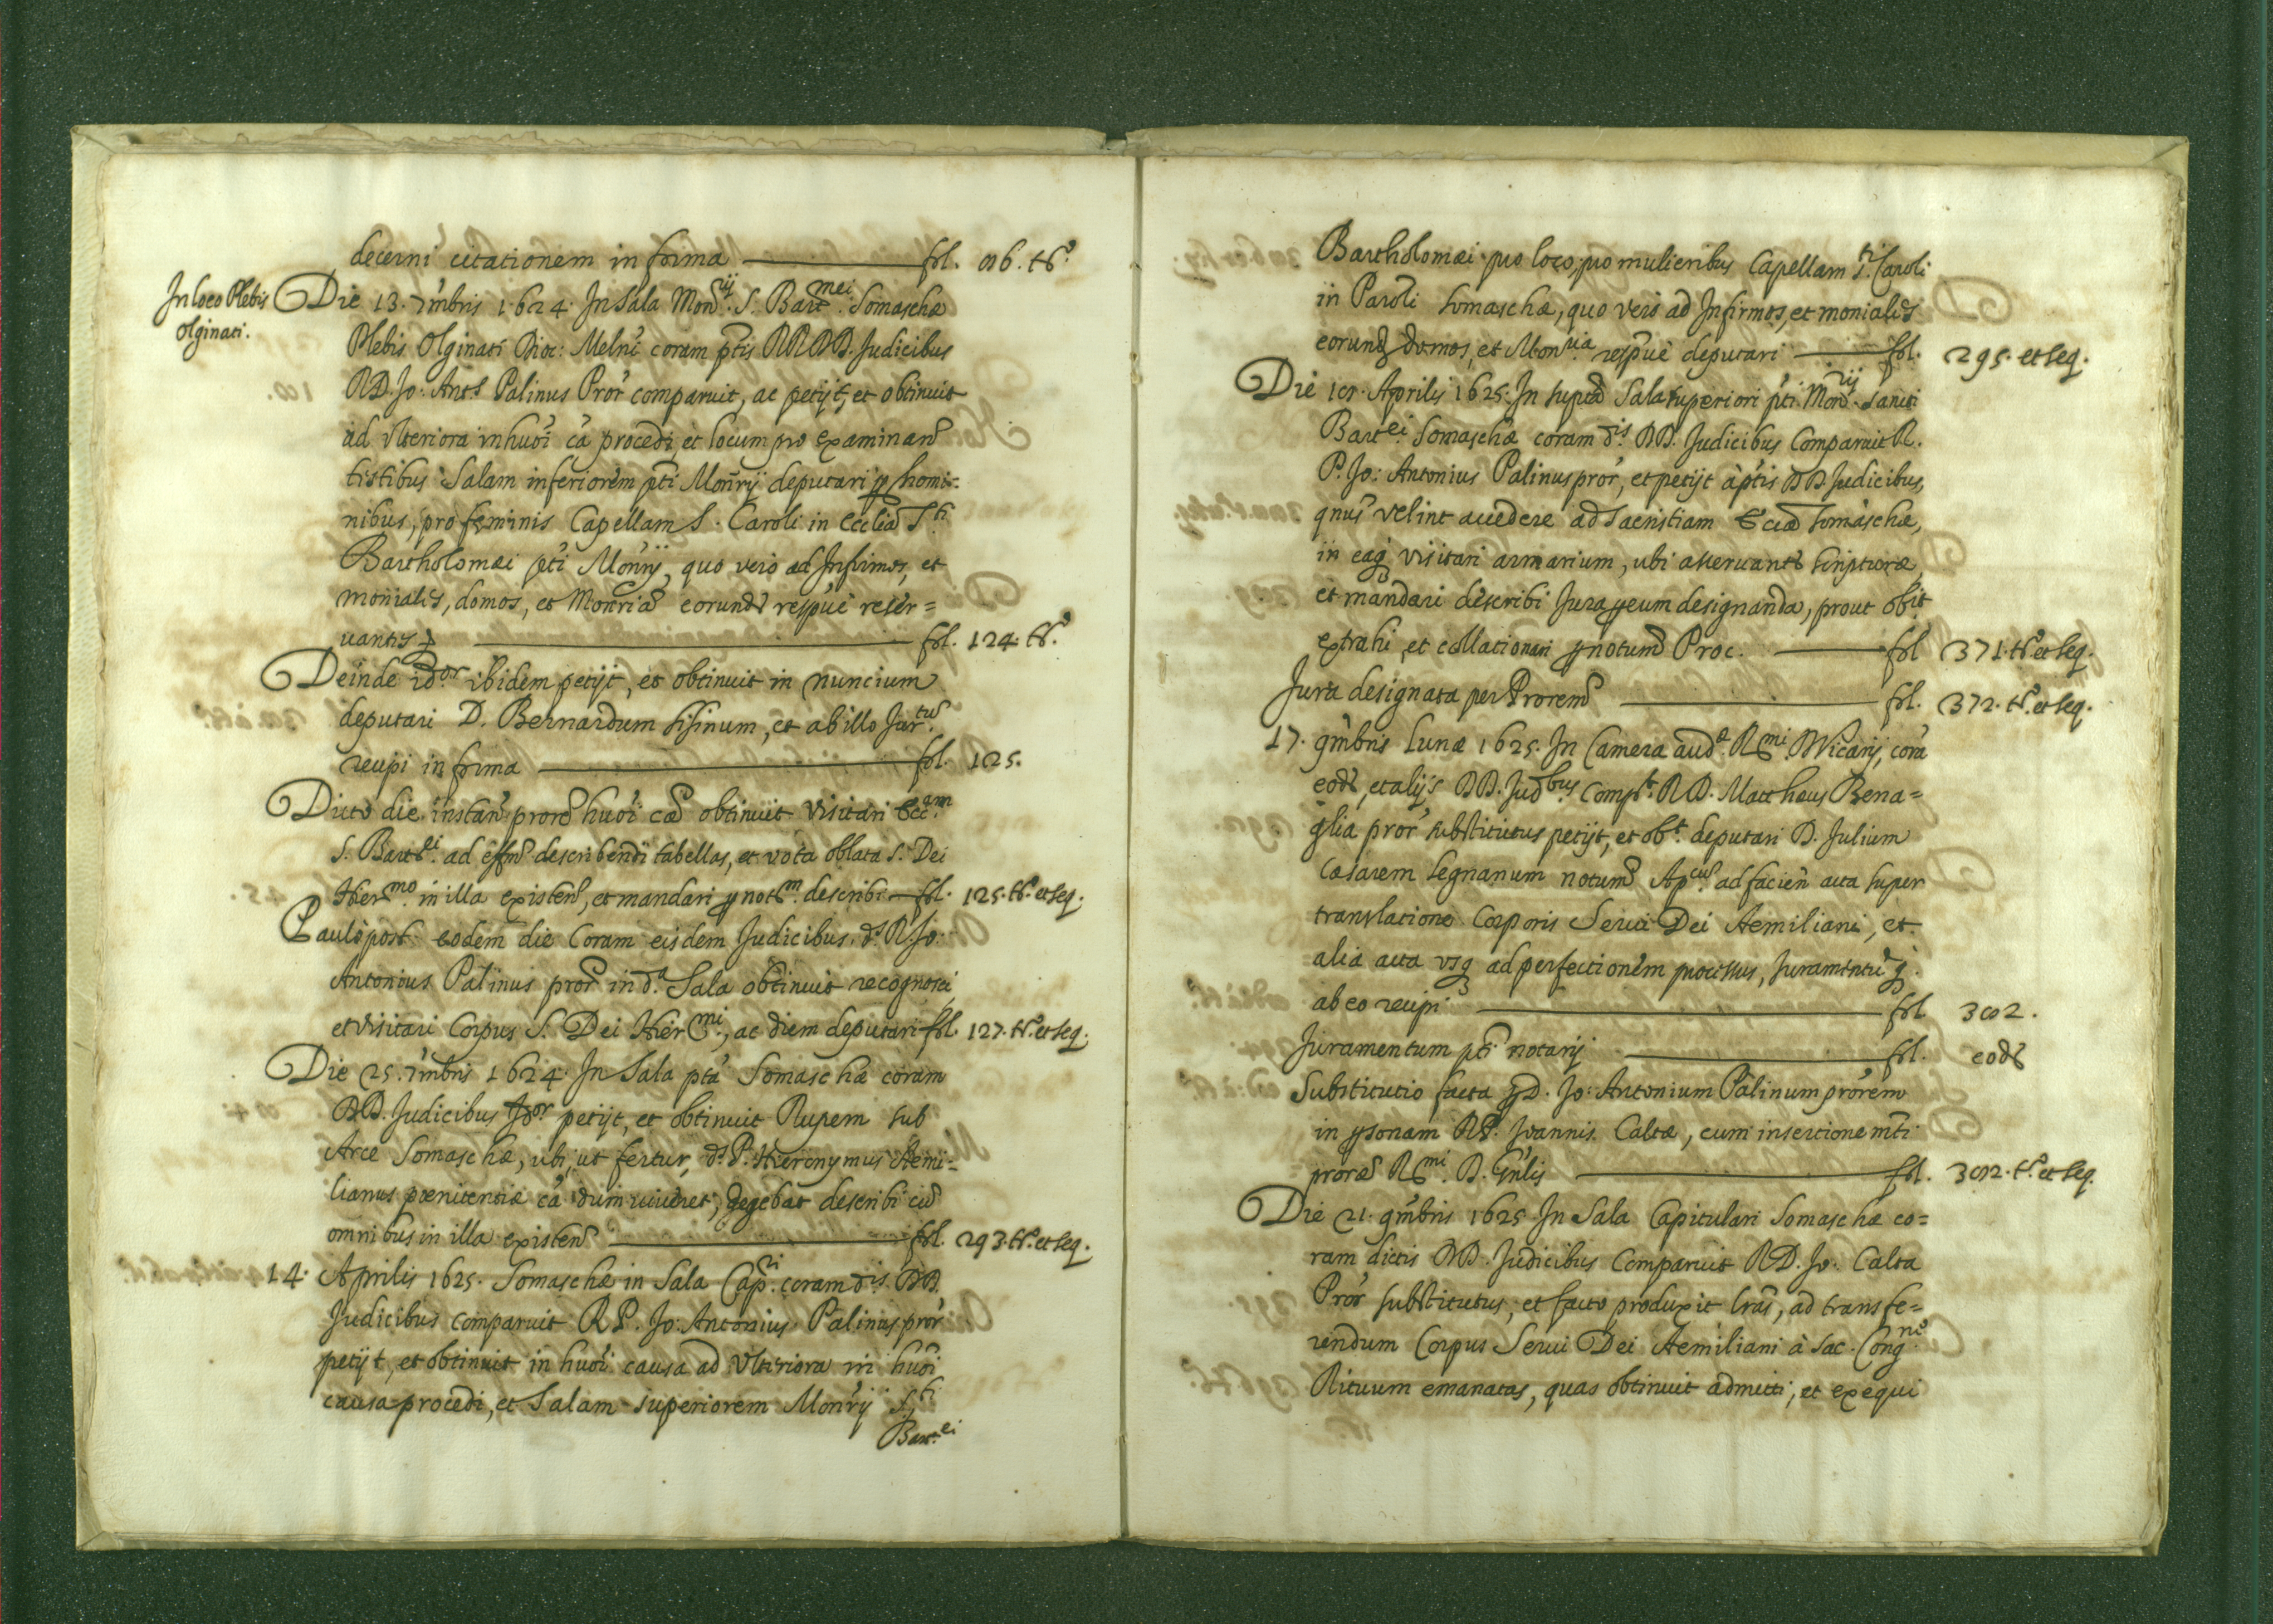 decerni citationem in forma ——— fol. 96. tº.
In loco Plebis
Olginati.
Die 13. 7mbris 1624. In Sala Monrij. S. Bartmei. Somaschæ
Plebis Olginati Dioc: Melni coram ptis RR DD. Judicibus
RD. Jo: Ants Palinus Pror comparuit, ac petijt, et obtinuit
ad vlteriora in huōi cā procedi, et locum pro examinand
tistibus Salam inferiorem pti Monrij deputari p homi-
nibus, pro feminis Capellam S. Caroli in Ecclia Sti
Bartholomæi pti Monrij, quo vero ad Infirmos, et
monialis, domos, et Monria eorund respue reser=
uantis ——— fol. 124. tº.
Deinde idor ibidem petijt, et obtinuit in nuncium
deputari D. Bernardum Sisinum, et ab illo Jurtu
recipi in forma ——— fol. 125.
Dicto die instan prore huōi cā obtinuit visitari Eccam
S. Bartei. ad effm describendi tabellas, et vota oblata S. Dei
Hiermo. in illa existen, et mandari p notm. describi — fol. 125. tº. et seq.
Paulò post eodem die Coram eisdem Judicibus. ds R. Jo:
Antonius Palinus pror in da. Sala obtinuit recognosci,
et visitari Corpus S. Dei Hiermi., ac diem deputari fol. 127. tº. et seq.
Die 25. 7mbris 1624. In Sala ptā Somaschæ coram
DD. Judicibus Idor petijt, et obtinuit Rupem sub
Arce Somaschæ, ubi, ut fertur, ds. P. Hieronymus Aemi-
lianus pœnitentiæ cā dum viueret, degebat describi cū
omnibus in illa existen ——— fol. 293. tº. et seq.
14. Aprilis 1625. Somaschæ in Sala Capri. coram dis. DD.
Judicibus comparuit R P. Jo: Antonius Palinus pror
petijt, et obtinuit in huōi causa ad vlteriora in huōi
causa procedi, et Salam superiorem Monrij Sti
Bartei
Bartholomæi pro loco, pro mulieribus Capellam Sti. Caroli
in Paroli Somaschæ, quo vero ad Infirmos, et monialis
eorund domos, et Monria respue deputari ——— fol. 295. et seq.
Die 19. Aprilis 1625. In supta Sala superiori pti. Monrij. Sancti
Bartei Somaschæ coram dis. DD. Judicibus Comparuit R.
P. Jo: Antonius Palinus pror, et petijt à ptis DD Judicibus,
qnus velint accedere ad Sacristiam Eccæ Somaschæ,
in eaq visitari armarium, ubi asseruantr scripturæ,
et mandari describi Jura p eum designanda, prout obit
extrahi, et collationari p notum Proc. ——— fol 371. tº. et seq.
Jura designata per Prorem ——— fol. 372. tº. et seq.
17. 9mbris Lunæ 1625. In Camera audæ. Rmi. D Vicarij, corā
eod, et alijs DD. Judbus. Compt. R D. Mattheus Bena=
glia pror substitutus petijt, et obt. deputari D. Julium
Cæsarem Legnanum notum Apcū. ad facien acta super
translatione Corporis Serui Dei Aemiliani, et
alia acta vsq ad perfectionem processus, Juramentūq.
ab eo recipi ——— fol 392.
Juramentum pti notarij ——— fol. eod
Substitutio facta p D. Jo: Antonium Palinum prorem
in psonam R P. Joannis Caltæ, cum insertione mti
proræ Rmi. D. Gnlis ——— fol. 392. tº. et seq.
Die 21. 9mbris 1625 In Sala Capitulari Somaschæ co=
ram dictis DD. Judicibus Comparuit R D. Jo. Calta
Pror substitutus, et facto produxit lrās, ad transfe=
rendum Corpus Serui Dei Aemiliani à Sac. Congne
Rituum emanatas, quas obtinuit admitti, et exequi